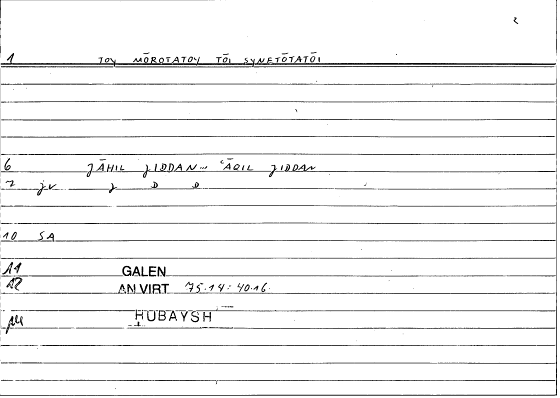 2
1 TOY MŌROTATOY TŌI SYNETŌTATŌI
6 JĀHIL JIDDAN - ʿĀQIL JIDDAN
7 jv J D D
10 SA
A1 GALEN
A2 AN VIRT 75.14: 40.16.
ḤUBAYSH